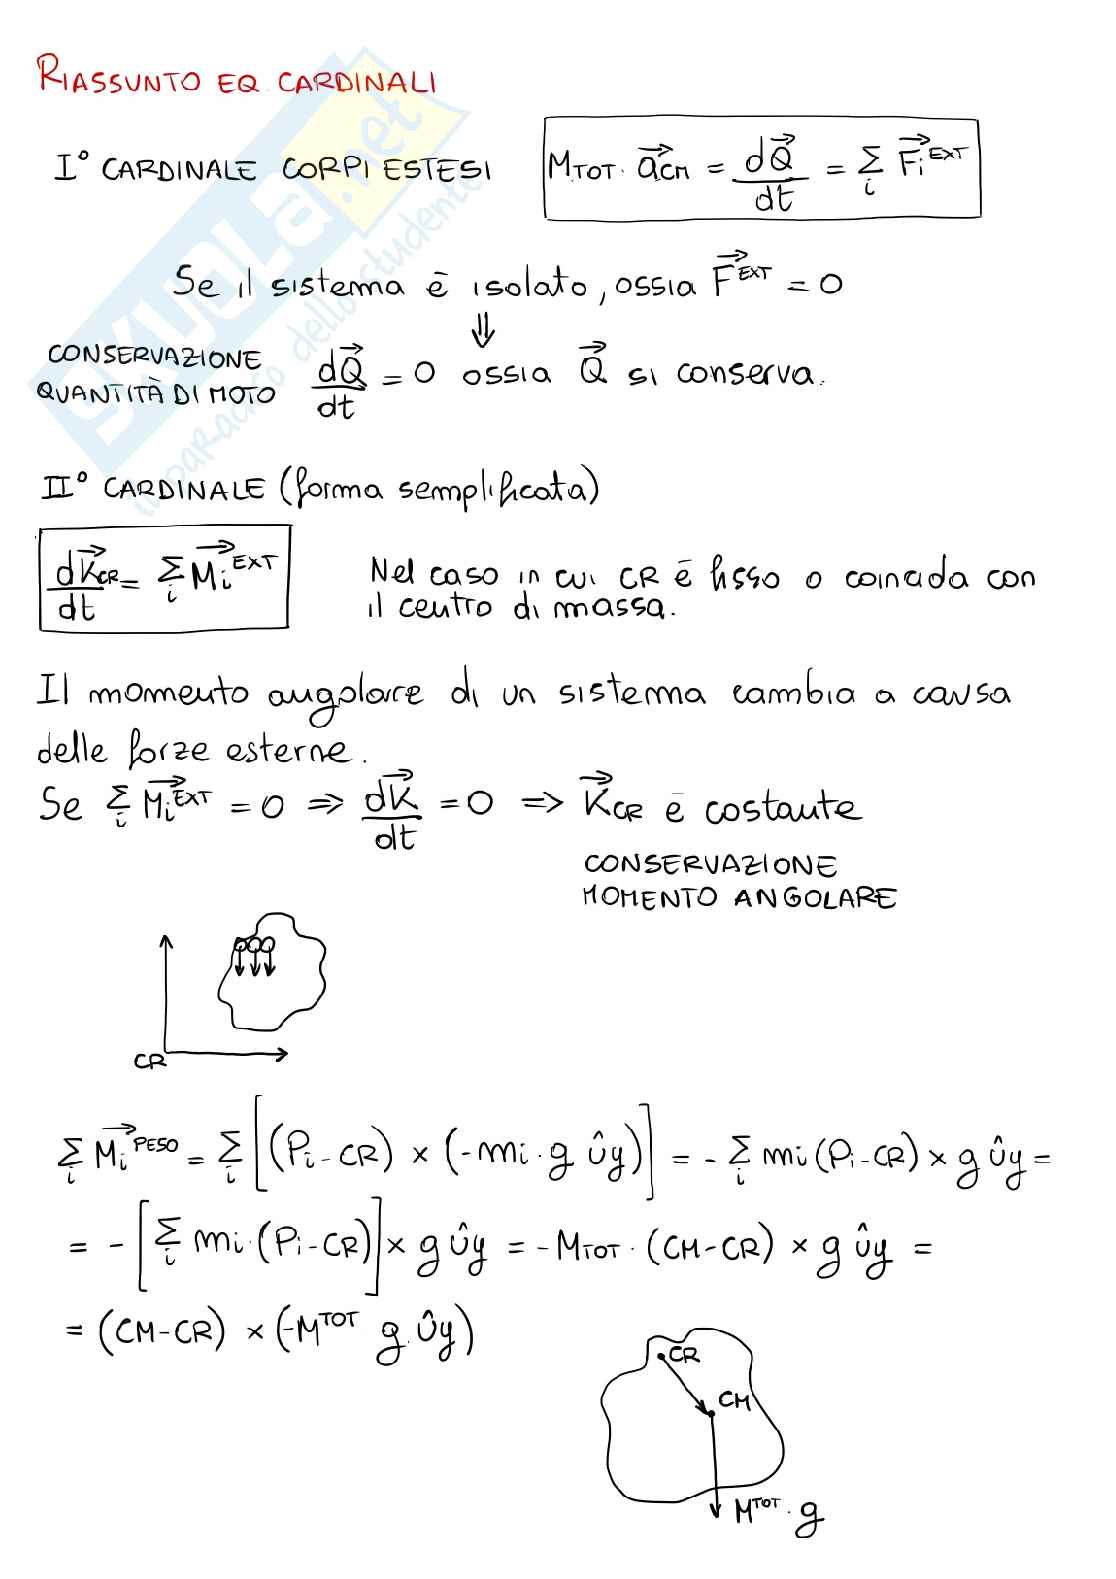 RIASSUNTO EQ. CARDINALI
I° CARDINALE CORPI ESTESI M_TOT · a⃗_CM = dQ⃗/dt = Σ_i F⃗_i^EXT
Se il sistema è isolato, ossia F⃗^EXT = 0
⇓
CONSERVAZIONE
QUANTITÀ DI MOTO dQ⃗/dt = 0 ossia Q⃗ si conserva.
II° CARDINALE (forma semplificata)
dK⃗_CR/dt = Σ_i M⃗_i^EXT
Nel caso in cui CR è fisso o coincida con
il centro di massa.
Il momento angolare di un sistema cambia a causa
delle forze esterne.
Se Σ_i M⃗_i^EXT = 0 => dK⃗/dt = 0 => K⃗_CR è costante
CONSERVAZIONE
MOMENTO ANGOLARE
CR
Σ_i M⃗_i^PESO = Σ_i [(P_i - CR) × (-m_i · g û_y)] = - Σ_i m_i (P_i - CR) × g û_y =
= - [Σ_i m_i · (P_i - CR)] × g û_y = - M_TOT · (CM - CR) × g û_y =
= (CM - CR) × (-M^TOT g · û_y)
CR
CM
M^TOT · g
SKUOLA.net
il paradiso dello studente